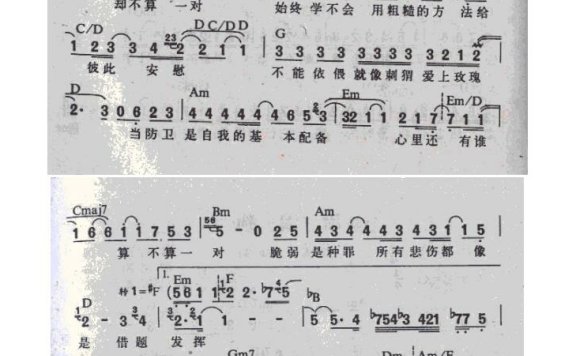 却不算一对 始终 学不会 用粗糙的方 法给
C/D D C/D D G
1 2 3 3 4 2 2 2 1 1 3 3 3 3 3 3 3 3 3 2 1 2
彼此 安慰 不能依偎就像刺猬 爱上玫瑰
D Am Em Em/D
2· 3 0 6 2 3 4 4 4 4 4 4 6 5 3 3 2 1 1 2 1 7 7 1 1
当防卫 是自我的基 本配备 心里还 有谁
Cmaj7 Bm Am
1 6 6 1 1 7 5 3 5 - 0 2 5 4 3 4 4 3 4 4 3 4 1 1 5
算 不算一 对 脆弱 是种罪 所有悲伤都 像
1.
D Em F
转1=#F (5 6 1 1 2 2 2· b7 5 bB
2 - 3 4 3 2· 1 1 - 5 5· 4 b7 5 4 b3 4 2 1 b7 7 5
是 借题 发挥
Gm7 Dm Am/E